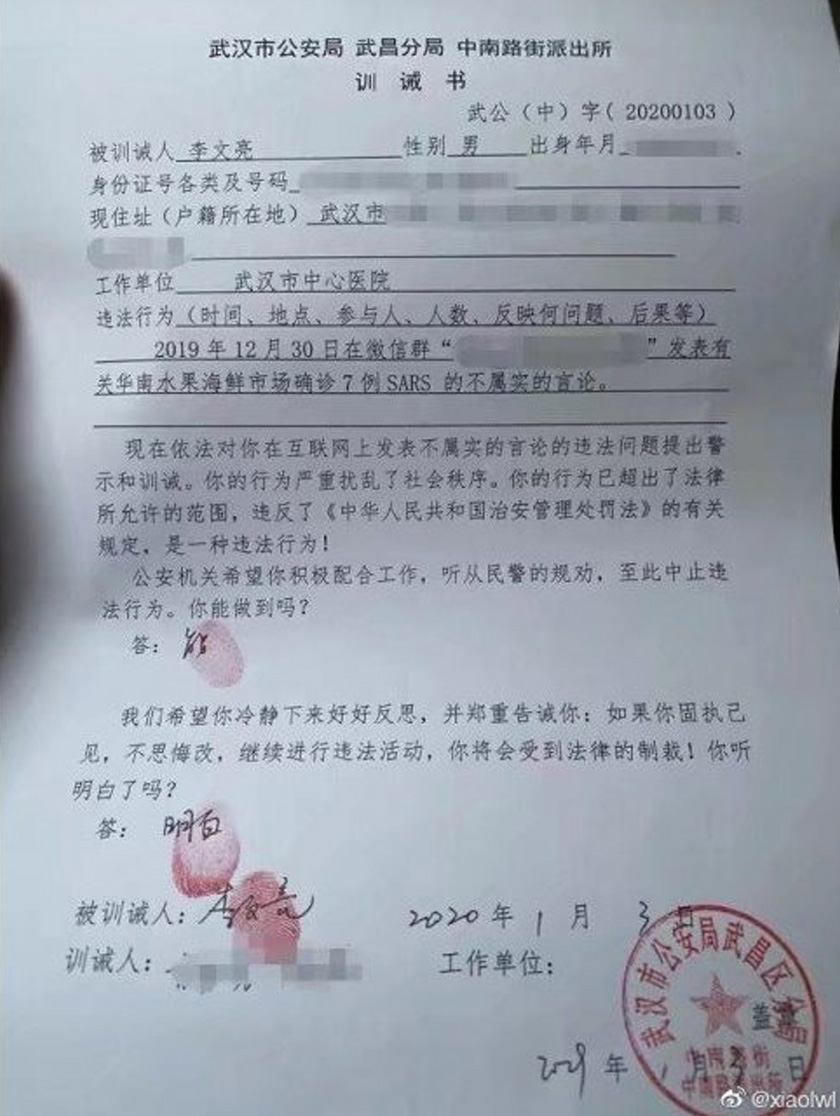 武汉市公安局 武昌分局 中南路街派出所
训 诫 书
武公（中）字( 20200103 )
被训诫人 李文亮 性别 男 出身年月
身份证号各类及号码
现住址（户籍所在地） 武汉市
工作单位 武汉市中心医院
违法行为（时间、地点、参与人、人数、反映何问题、后果等）
2019 年 12 月 30 日在微信群“ ”发表有
关华南水果海鲜市场确诊 7 例 SARS 的不属实的言论。
现在依法对你在互联网上发表不属实的言论的违法问题提出警
示和训诫。你的行为严重扰乱了社会秩序。你的行为已超出了法律
所允许的范围，违反了《中华人民共和国治安管理处罚法》的有关
规定，是一种违法行为！
公安机关希望你积极配合工作，听从民警的规劝，至此中止违
法行为。你能做到吗？
答： 能
我们希望你冷静下来好好反思，并郑重告诫你：如果你固执己
见，不思悔改，继续进行违法活动，你将会受到法律的制裁！你听
明白了吗？
答： 明白
被训诫人：李文亮 2020 年 1 月 3 日
训诫人： 工作单位：
武汉市公安局武昌区分局
盖章
中南路街
派出所
年 1 月 3 日
@xiaolwl